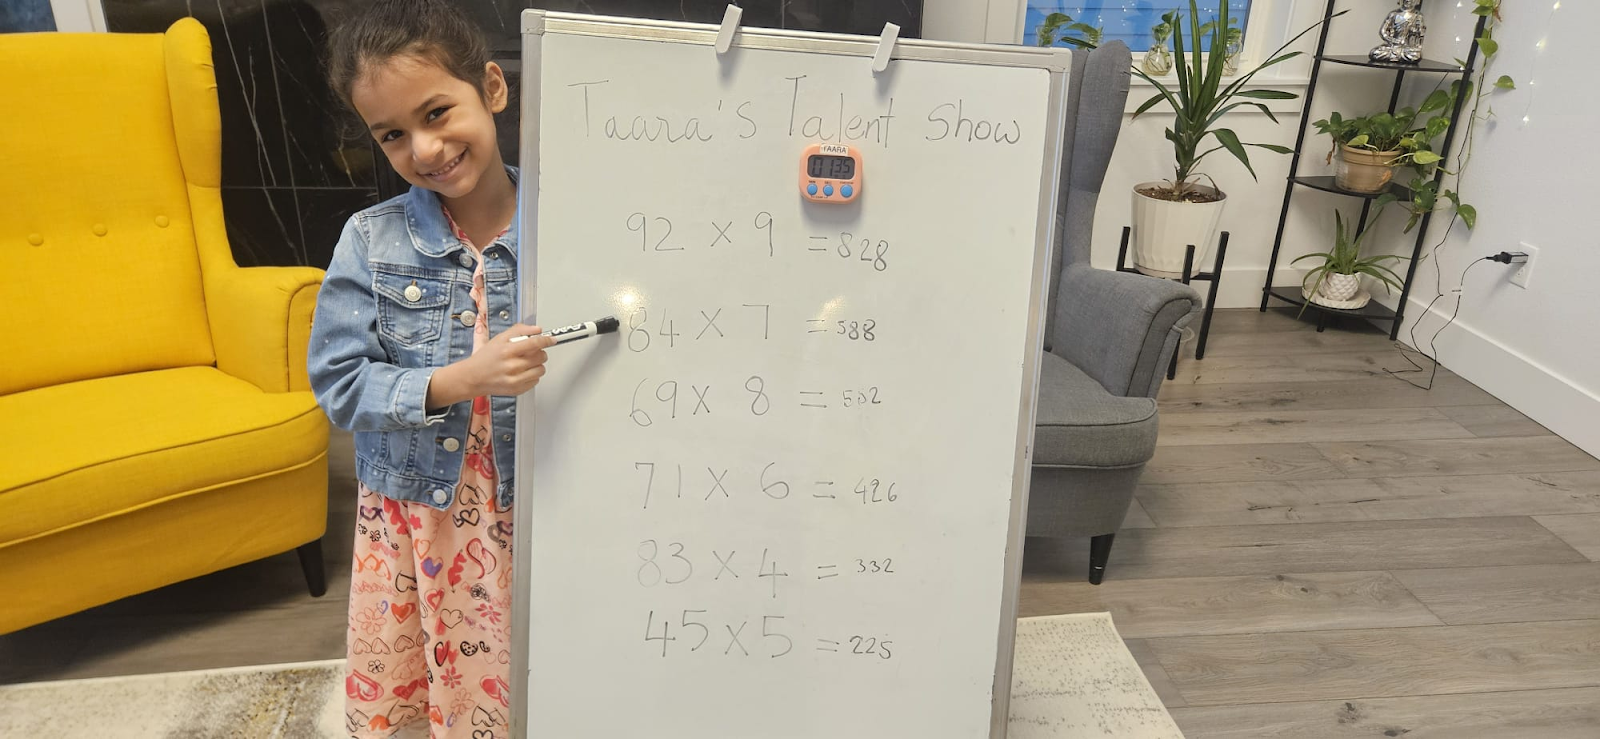 Taara's Talent Show
TAARA
0135
92 × 9 = 828
84 × 7 = 588
69 × 8 = 502
71 × 6 = 426
83 × 4 = 332
45 × 5 = 225